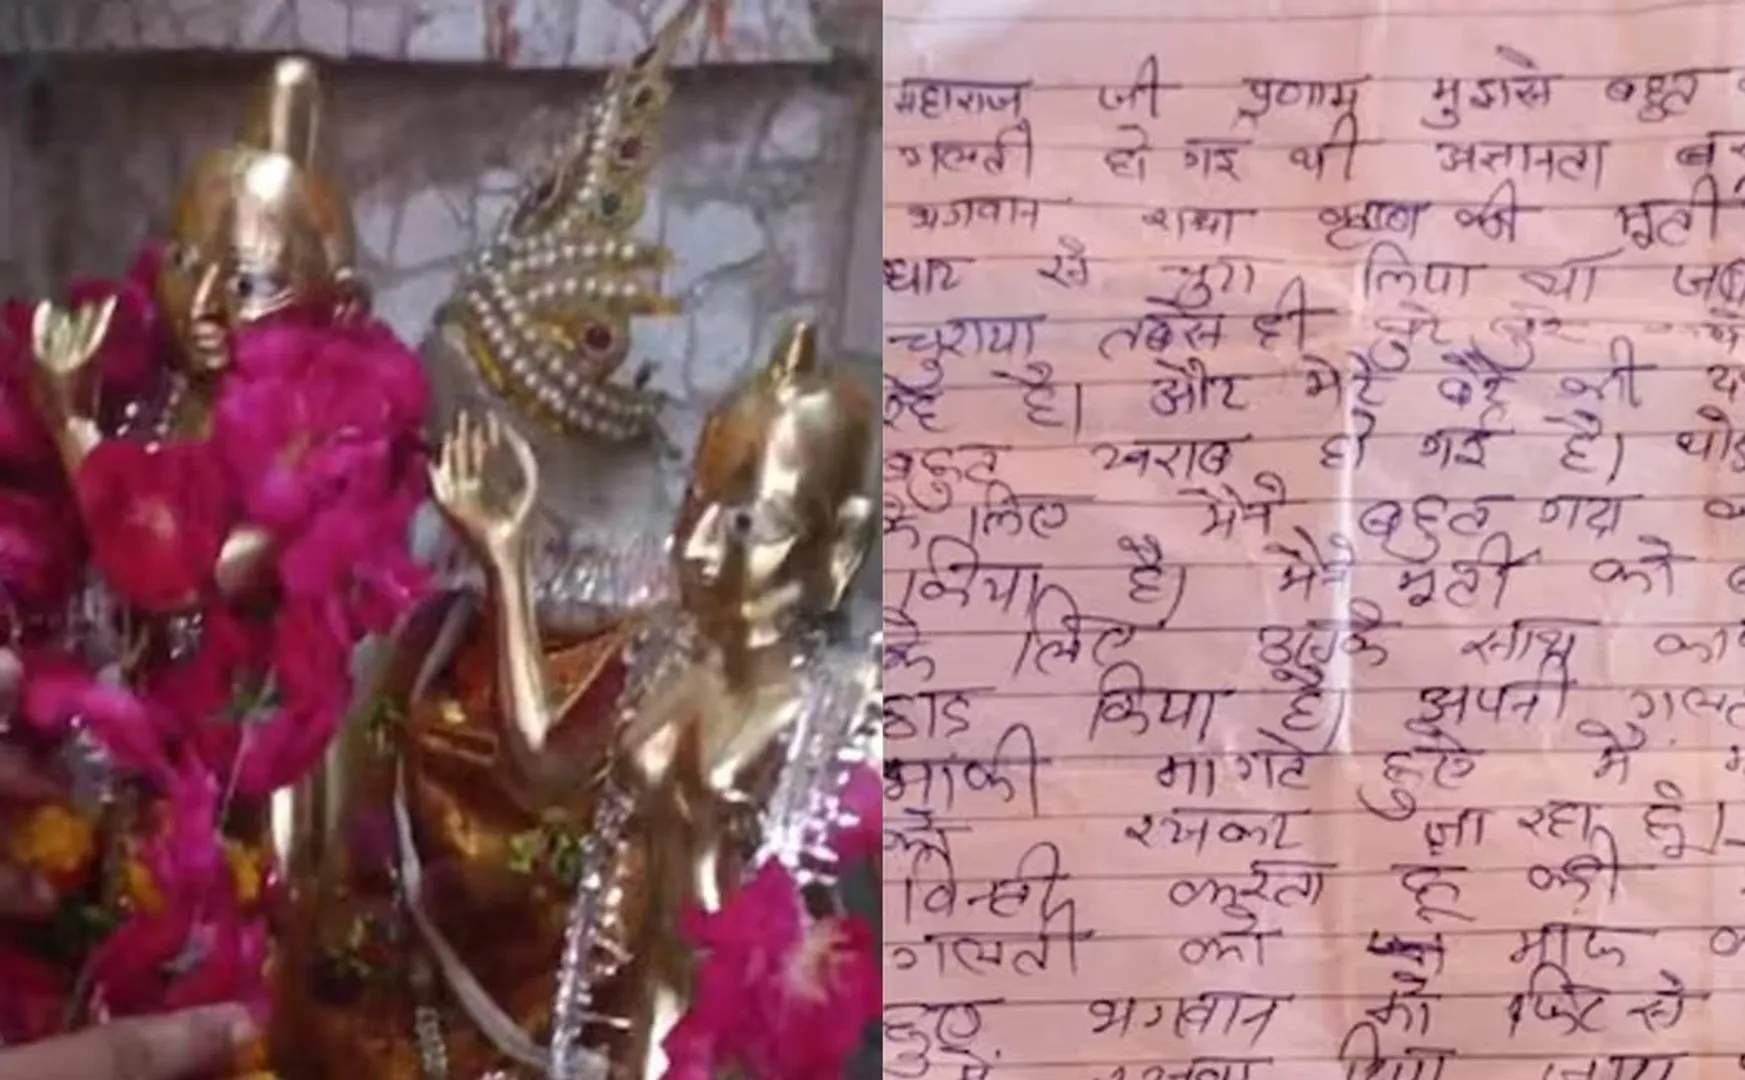 महाराज जी प्रणाम मुझसे बहुत
गलती हो गई थी अज्ञानता बस
भगवान राधा कृष्ण की मूर्ती
से चुरा लिया था जब
चुराया तबसे ही बुरे बुरे
रहे है। और मेरे बेटे की
बहुत खराब हो गई है। थोडे
के लिए मैने बहुत गदा
किया है। मैने मूर्ती को
के लिए उसके साथ
छाड किया है। अपनी गलत
माफी मागते हुए मै
रखकर जा रहा हूँ।
विन्ती करता हू की
गलती को माफ
हुए भगवान को फिर से
में रखवा दिया जाय